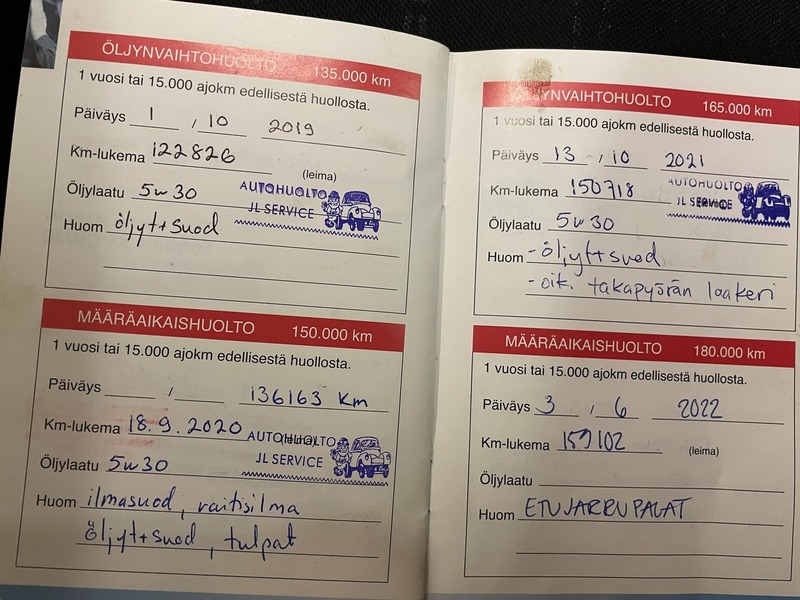 ÖLJYNVAIHTOHUOLTO 135.000 km
1 vuosi tai 15.000 ajokm edellisestä huollosta.
Päiväys 1 / 10 2019
Km-lukema 122826
(leima)
Öljylaatu 5w30
AUTOHUOLTO
JL SERVICE
Huom öljyt+suod
MÄÄRÄAIKAISHUOLTO 150.000 km
1 vuosi tai 15.000 ajokm edellisestä huollosta.
Päiväys / 136163 Km
Km-lukema 18.9.2020
(leima)
AUTOHUOLTO
JL SERVICE
Öljylaatu 5w30
Huom ilmasuod, raitisilma
öljyt+suod, tulpat
ÖLJYNVAIHTOHUOLTO 165.000 km
1 vuosi tai 15.000 ajokm edellisestä huollosta.
Päiväys 13 / 10 2021
Km-lukema 150718
AUTOHUOLTO
JL SERVICE
Öljylaatu 5w30
Huom -öljyt+suod
-oik. takapyörän laakeri
MÄÄRÄAIKAISHUOLTO 180.000 km
1 vuosi tai 15.000 ajokm edellisestä huollosta.
Päiväys 3 / 6 2022
Km-lukema 159102
(leima)
Öljylaatu
Huom ETUJARRUPALAT